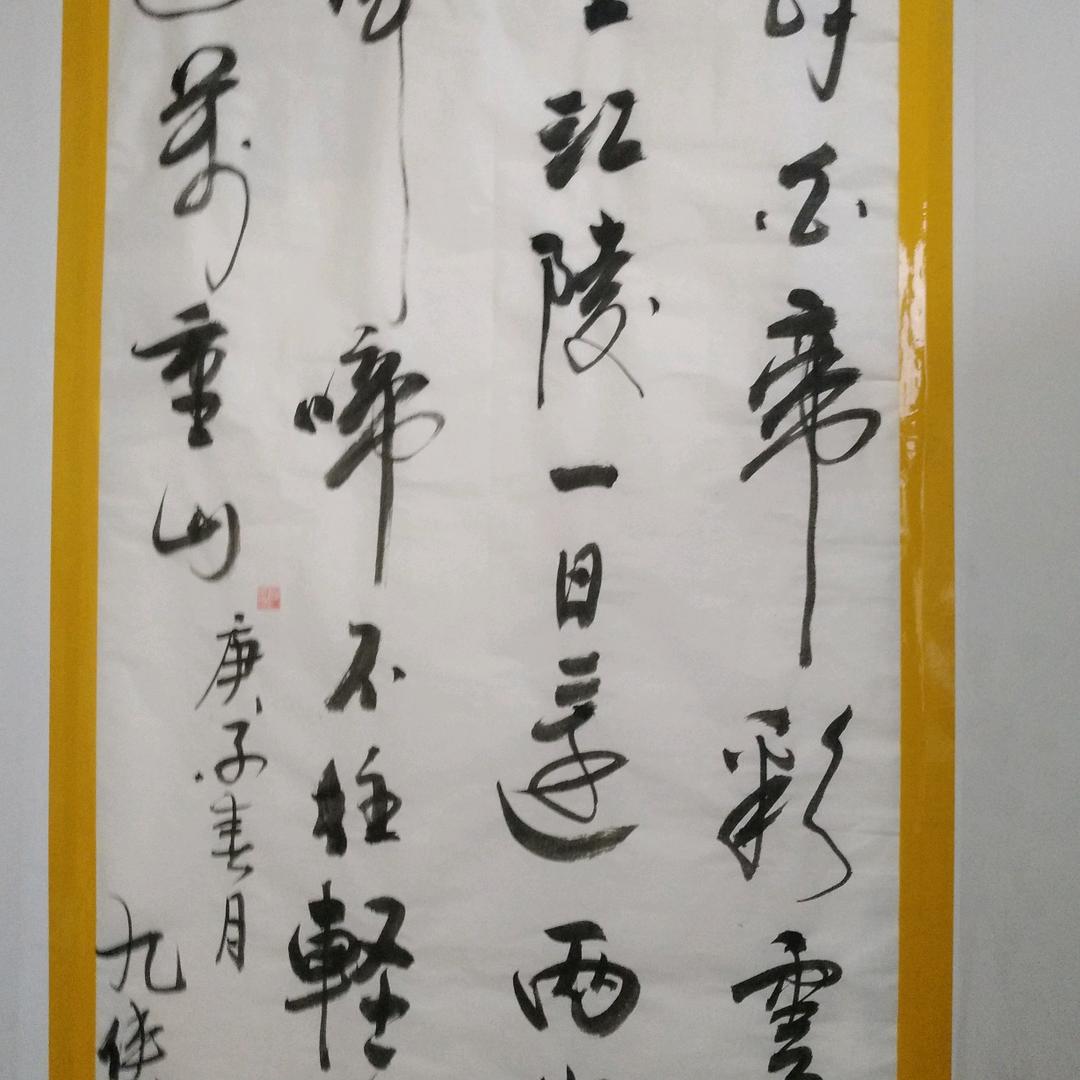 白帝彩雲
江陵一日還兩
啼不住輕
萬重山
庚子春月
九